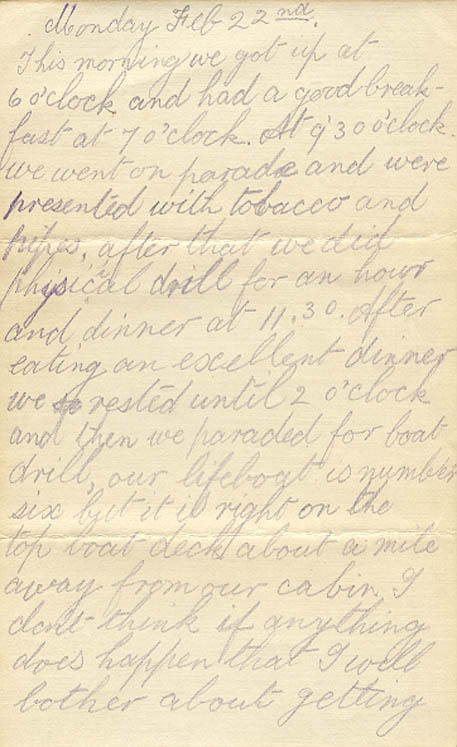 Monday Feb 22nd.
This morning we got up at
6 o'clock and had a good break-
fast at 7 o'clock. At 9'30 o'clock.
we went on parade and were
presented with tobacco and
pipes, after that we did
physical drill for an hour
and dinner at 11.30. After
eating an excellent dinner
we rested until 2 o'clock
and then we paraded for boat
drill, our lifeboat is number
six but it is right on the
top boat deck about a mile
away from our cabin, I
dont think if anything
does happen that I will
bother about getting